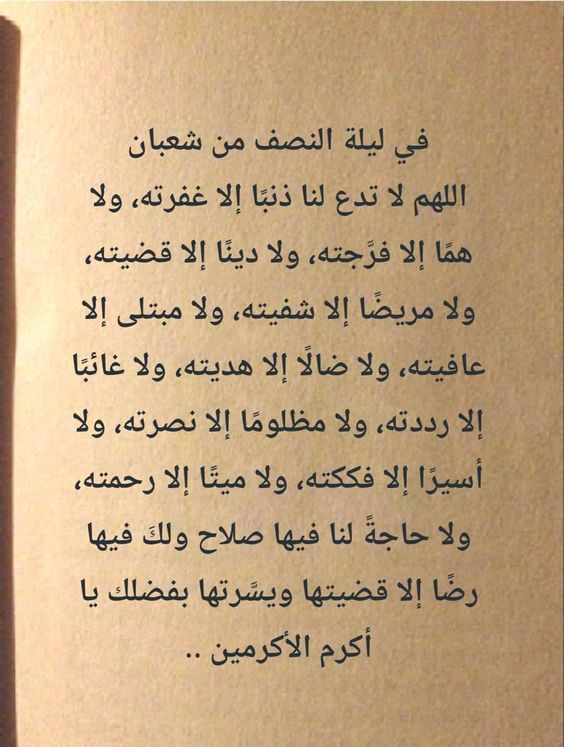 في ليلة النصف من شعبان
اللهم لا تدع لنا ذنبًا إلا غفرته، ولا
همًا إلا فرَّجته، ولا دينًا إلا قضيته،
ولا مريضًا إلا شفيته، ولا مبتلى إلا
عافيته، ولا ضالًا إلا هديته، ولا غائبًا
إلا رددته، ولا مظلومًا إلا نصرته، ولا
أسيرًا إلا فككته، ولا ميتًا إلا رحمته،
ولا حاجةً لنا فيها صلاح ولكَ فيها
رضًا إلا قضيتها ويسَّرتها بفضلك يا
أكرم الأكرمين ..